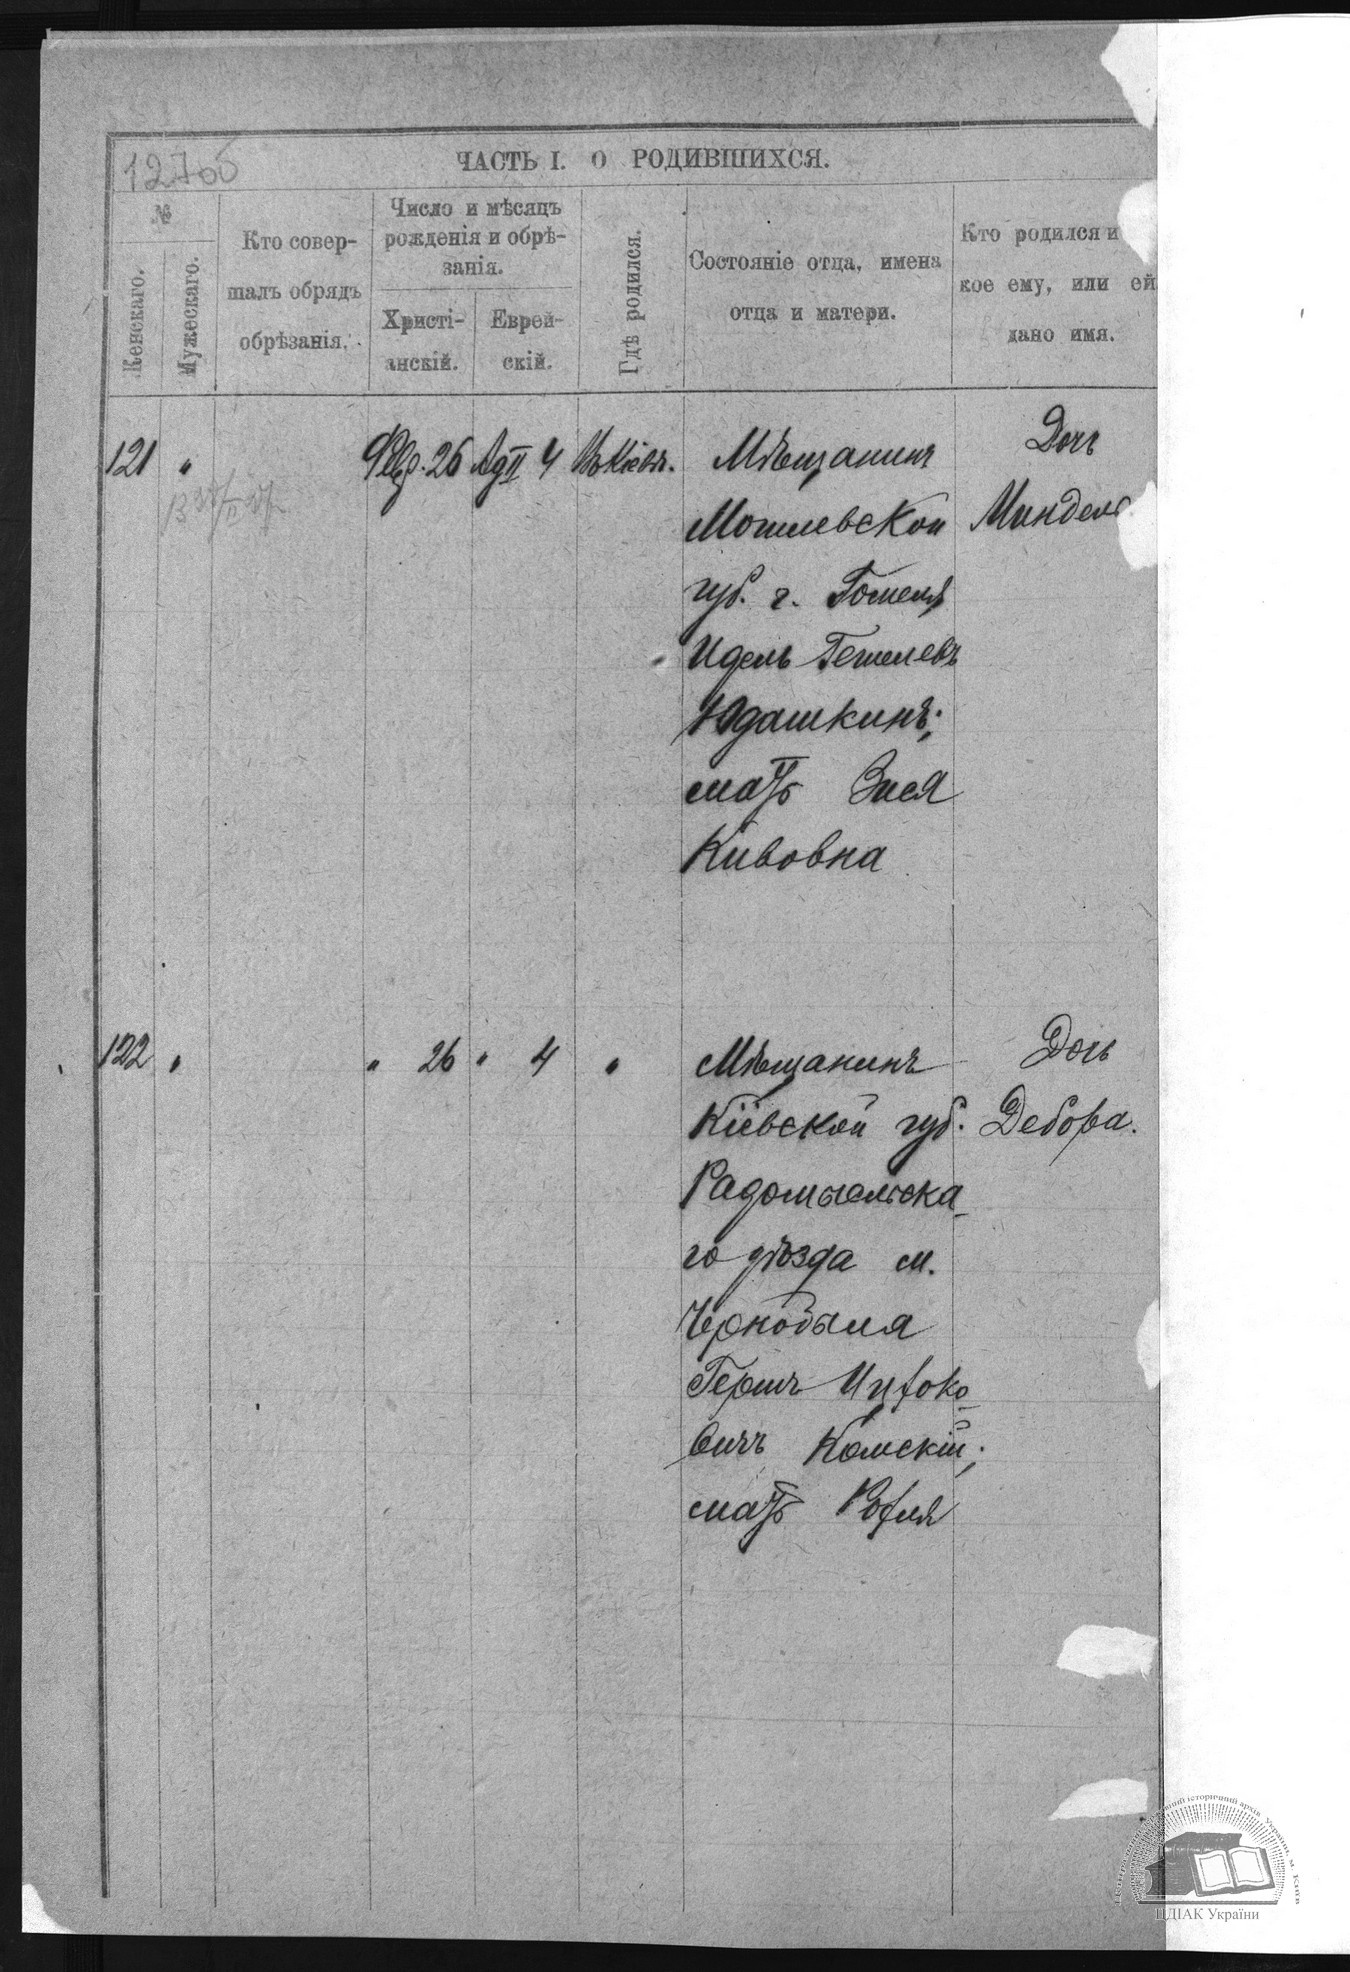 127об
ЧАСТЬ I. О РОДИВШИХСЯ.
№
Женскаго.
Мужескаго.
Кто совер-
шалъ обрядъ
обрѣзанія.
Число и мѣсяцъ
рожденія и обрѣ-
занія.
Христі-
анскій.
Еврей-
скій.
Гдѣ родился.
Состояніе отца, имена
отца и матери.
Кто родился и
кое ему, или ей
дано имя.
121 " Февр. 26 Ад II 4 Въ Кіевѣ.
Мѣщанинъ
Могилевской
губ. г. Гомеля
Идель Гешелевъ
Юдашкинъ;
мать Зися
Кивовна
Дочь
Миндель
122 " " 26 " 4 "
Мѣщанинъ
Кіевской губ.
Радомысльска-
го уѣзда м.
Чернобыля
Гершъ Ицково-
вичъ Комскій;
мать Рохля
Дочь
Дебора.
ЦДІАК України